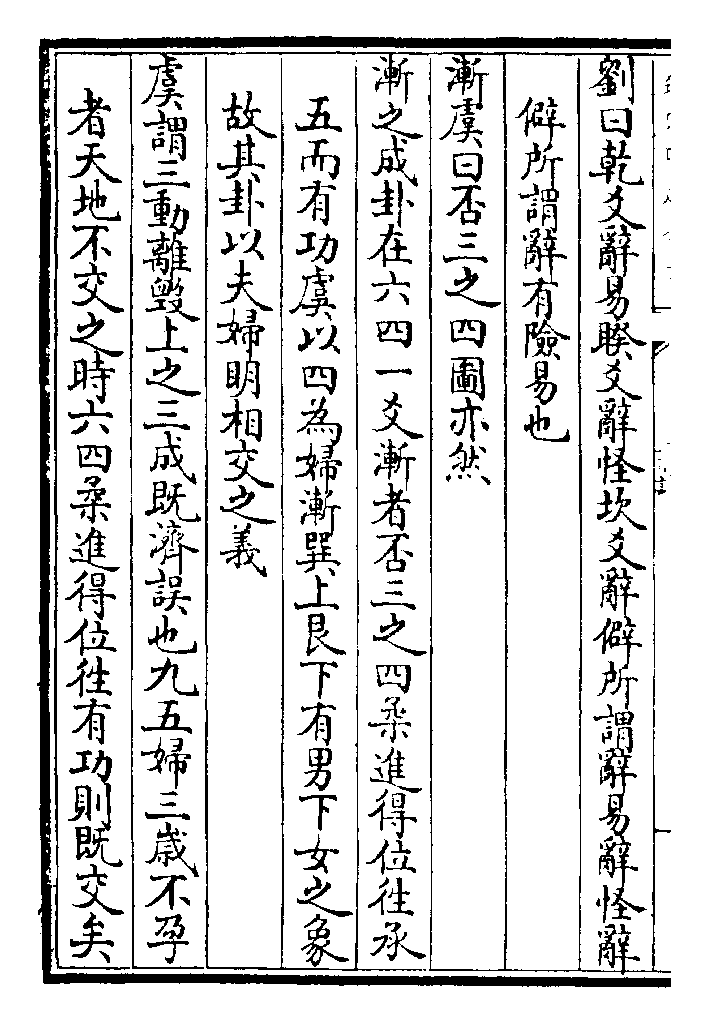 劉曰乾爻辭易睽爻辭怪坎爻辭僻所謂辭易辭怪辭
僻所謂辭有險易也
漸虞曰否三之四圖亦然
漸之成卦在六四一爻漸者否三之四柔進得位往承
五而有功虞以四為婦漸巽上艮下有男下女之象
故其卦以夫婦明相交之義
虞謂三動離毀上之三成既濟誤也九五婦三歲不孕
者天地不交之時六四柔進得位往有功則既交矣